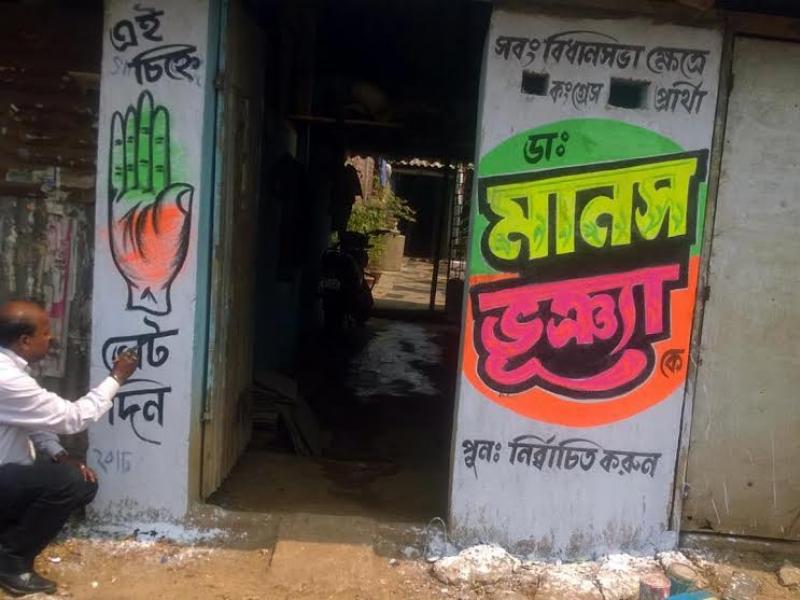 এই
চিহ্নে
ভোট
দিন
সবং বিধানসভা ক্ষেত্রে
কংগ্রেস প্রার্থী
ডাঃ
মানস
ভূঞ্যা
কে
পুনঃ নির্ব্বাচিত করুন